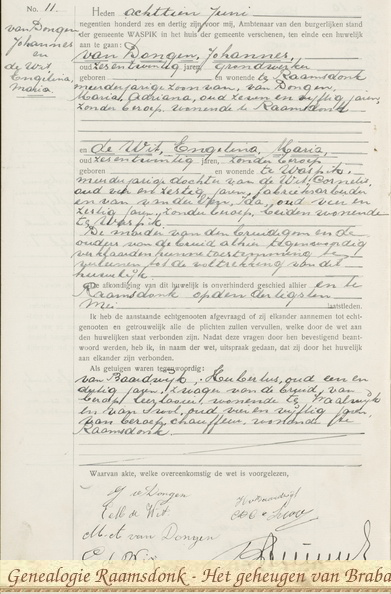 No. 11.
van Dongen
Johannes
en
de Wit
Engelina,
Maria
Heden achttien Juni
negentien honderd zes en dertig zijn voor mij, Ambtenaar van den burgerlijken stand
der gemeente WASPIK in het huis der gemeente verschenen, ten einde een huwelijk
aan te gaan:
van Dongen, Johannes,
oud zesentwintig jaren, grondwerker
geboren en wonende te Raamsdonk
meerderjarige zoon van, van Dongen,
Maria, Adriana, oud zeven en vijftig jaren,
zonder beroep, wonende te Raamsdonk
en de Wit, Engelina, Maria,
oud zesentwintig jaren, zonder beroep,
geboren en wonende te Waspik,
meerderjarige dochter van de Wit, Cornelis,
oud zestig jaren, fabrieksarbeider
en van van der Ida, oud vier en
zestig jaren, zonder beroep, beiden wonende
te Waspik.
De moeder van den bruidegom en de
ouders van de bruid alhier tegenwoordig
verklaarden hunne toestemming te
verleenen tot de voltrekking van dit
huwelijk.
De afkondiging van dit huwelijk is onverhinderd geschied alhier en te
Raamsdonk op den dertigsten
Mei laatstleden.
Ik heb de aanstaande echtgenooten afgevraagd of zij elkander aannemen tot
echtgenooten en getrouwelijk alle de plichten zullen vervullen, welke door de wet
aan den huwelijken staat verbonden zijn. Nadat deze vragen door hen bevestigend
beantwoord werden, heb ik, in naam der wet, uitspraak gedaan, dat zij door het huwelijk
aan elkander zijn verbonden.
Als getuigen waren tegenwoordig:
van Baardwijk, Hubertus, oud een en
dertig jaren, zwager van de bruid, van
beroep wonende te Waalwijk
en van oud vier en vijftig jaren,
van beroep chauffeur, wonende te
Raamsdonk.
Waarvan akte, welke overeenkomstig de wet is voorgelezen,
J v Dongen
E M de Wit
M A van Dongen
C de Wit
Genealogie Raamsdonk - Het geheugen van Braba